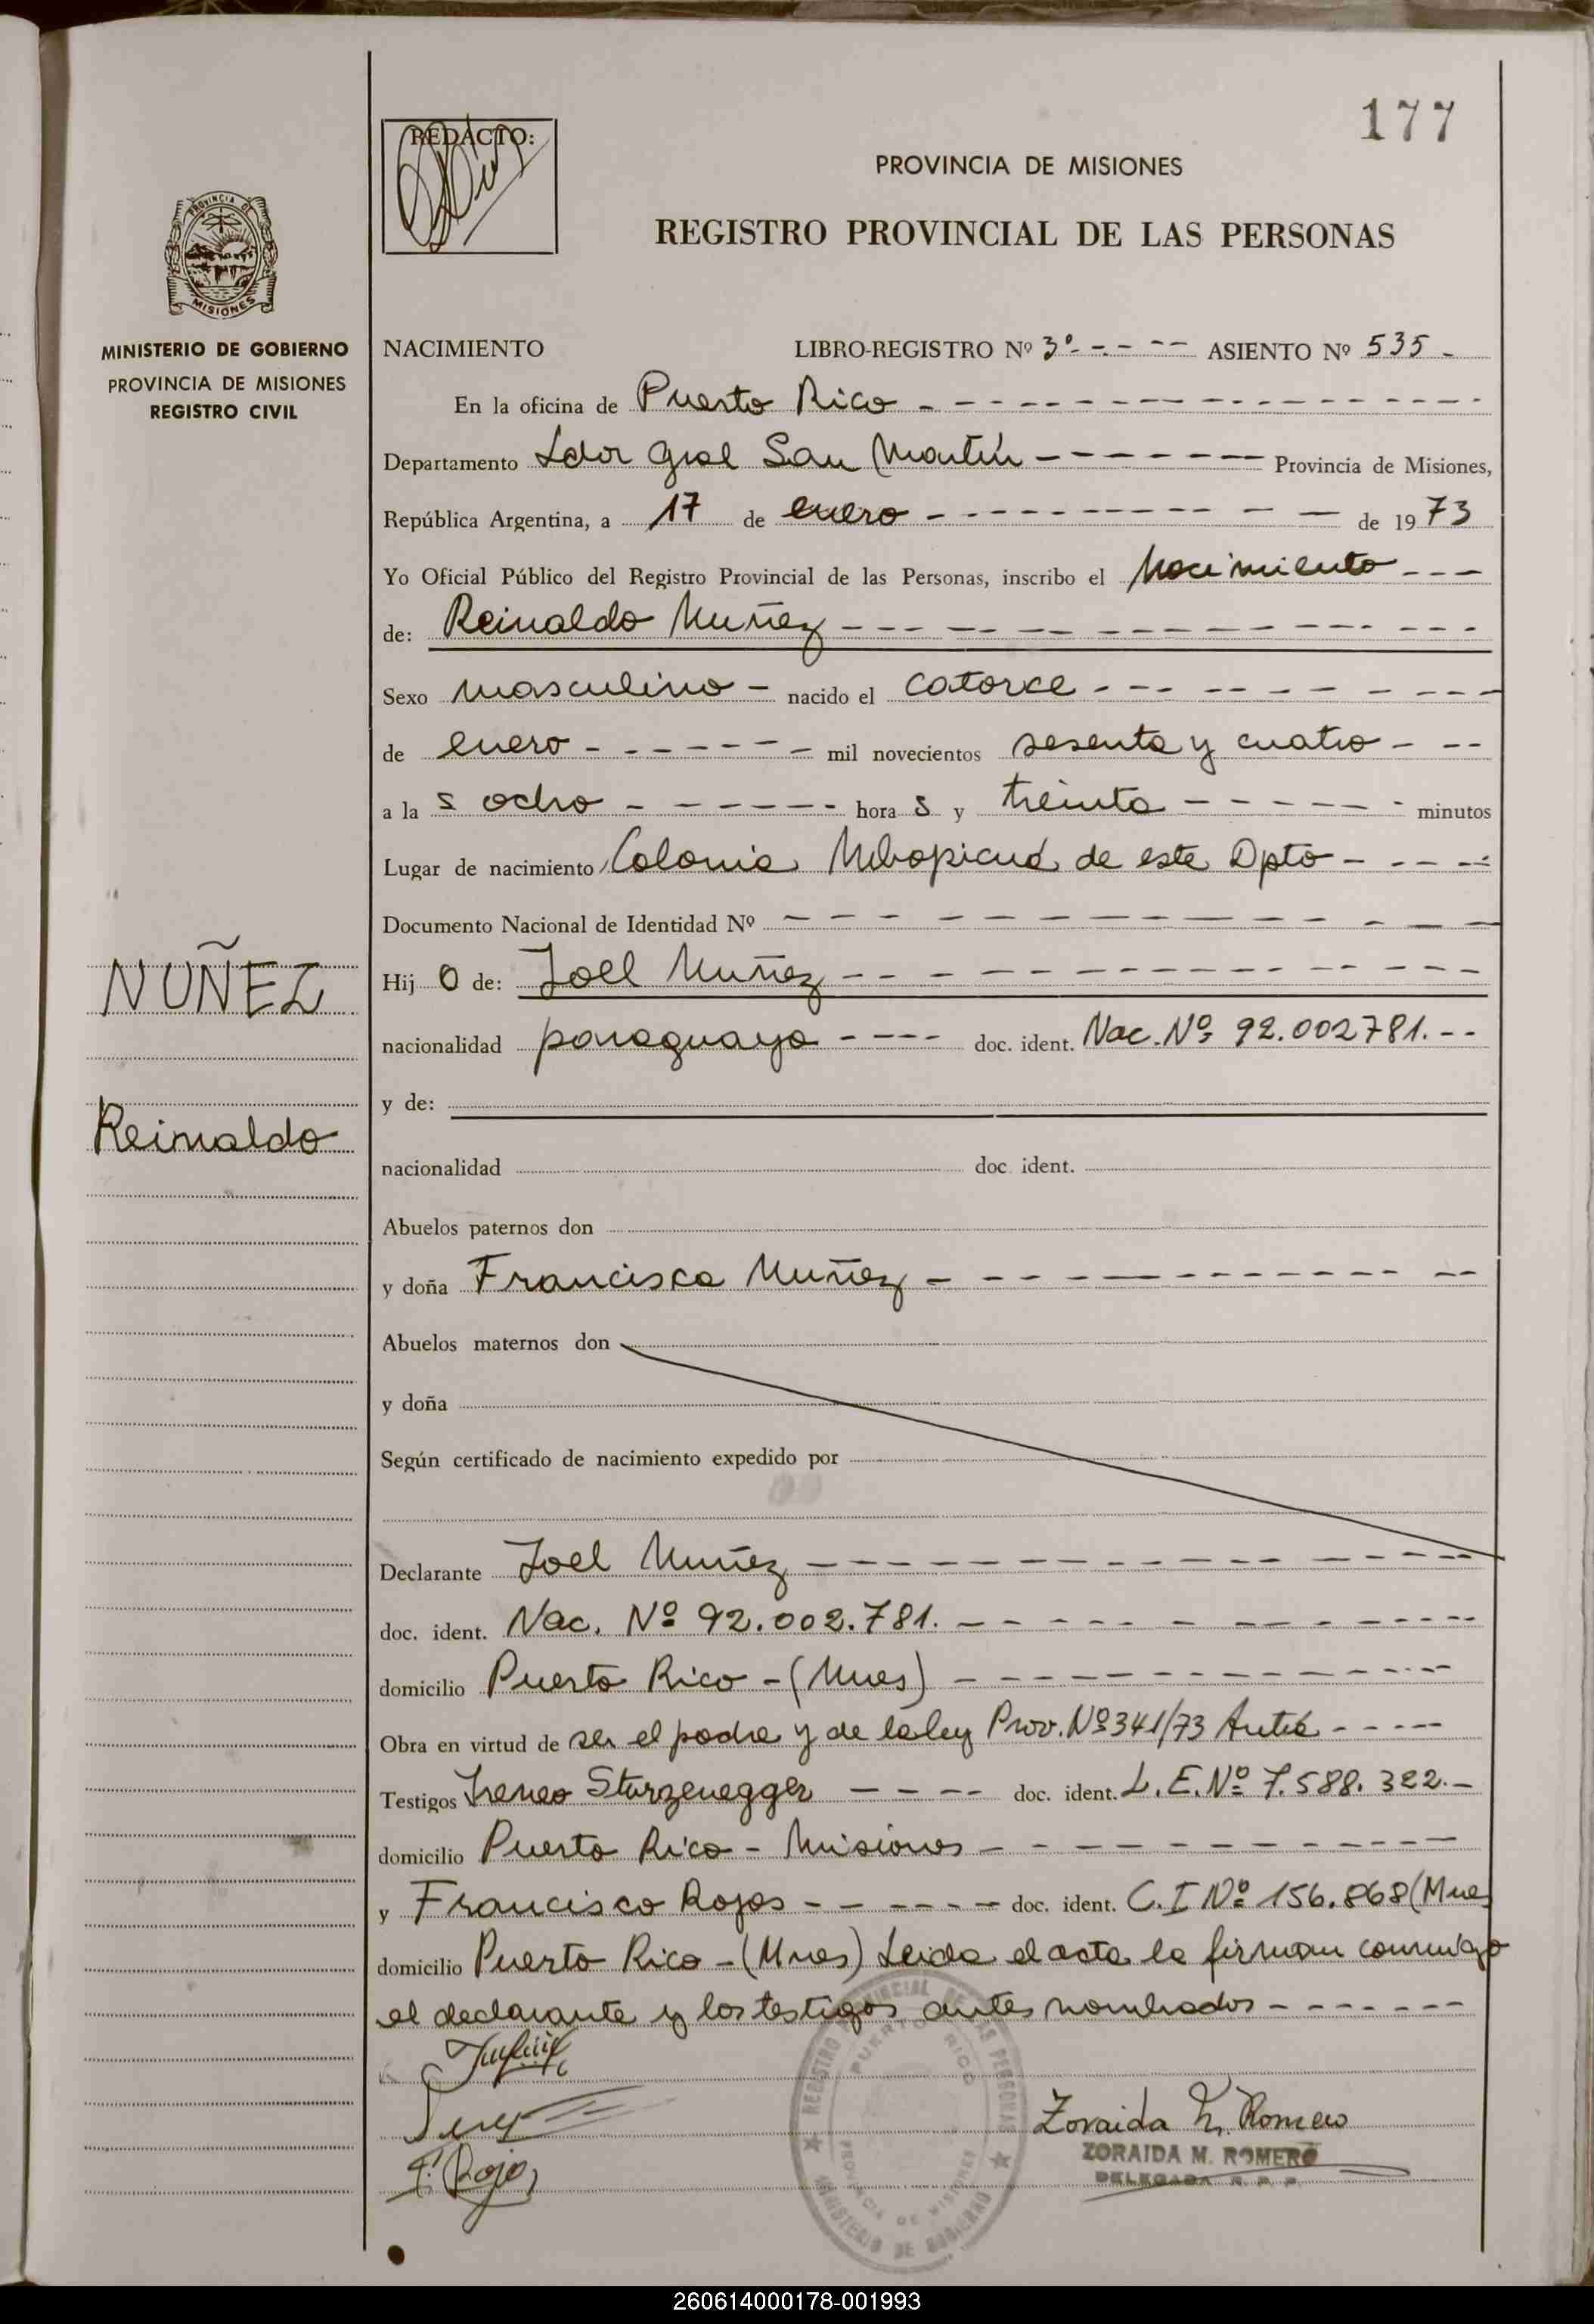 177
REDACTO:
PROVINCIA DE MISIONES
REGISTRO PROVINCIAL DE LAS PERSONAS
PROVINCIA DE
MISIONES
MINISTERIO DE GOBIERNO
PROVINCIA DE MISIONES
REGISTRO CIVIL
NACIMIENTO LIBRO-REGISTRO Nº 3º - - - - - ASIENTO Nº 535 -
En la oficina de Puerto Rico
Departamento Ldor Gral San Martín Provincia de Misiones,
República Argentina, a 17 de enero de 1973
Yo Oficial Público del Registro Provincial de las Personas, inscribo el Nacimiento
de: Reinaldo Nuñez
Sexo masculino nacido el catorce
de enero mil novecientos sesenta y cuatro
a la s ocho hora s y treinta minutos
Lugar de nacimiento Colonia de este Dpto
Documento Nacional de Identidad Nº
NUÑEZ
Hij o de: Joel Nuñez
nacionalidad paraguaya doc. ident. Nac. Nº 92.002781.
y de:
Reinaldo
nacionalidad doc. ident.
Abuelos paternos don
y doña Francisca Nuñez
Abuelos maternos don
y doña
Según certificado de nacimiento expedido por
Declarante Joel Nuñez
doc. ident. Nac. Nº 92.002.781.
domicilio Puerto Rico - (Mnes)
Obra en virtud de ser el padre y de la ley Prov. Nº 341/73
Testigos Ireneo Sturzenegger doc. ident. L.E. Nº 7.588.322.
domicilio Puerto Rico - Misiones
y Francisco Rojas doc. ident. C.I Nº 156.868 (Mnes
domicilio Puerto Rico - (Mnes) Leida el acta la firman conmigo
el declarante y los testigos antes nombrados
F. Rojas
Zoraida M. Romero
ZORAIDA M. ROMERO
DELEGADA R. P. P.
REGISTRO PROVINCIAL DE LAS PERSONAS
PUERTO RICO
PROVINCIA DE MISIONES
MINISTERIO DE GOBIERNO
260614000178-001993